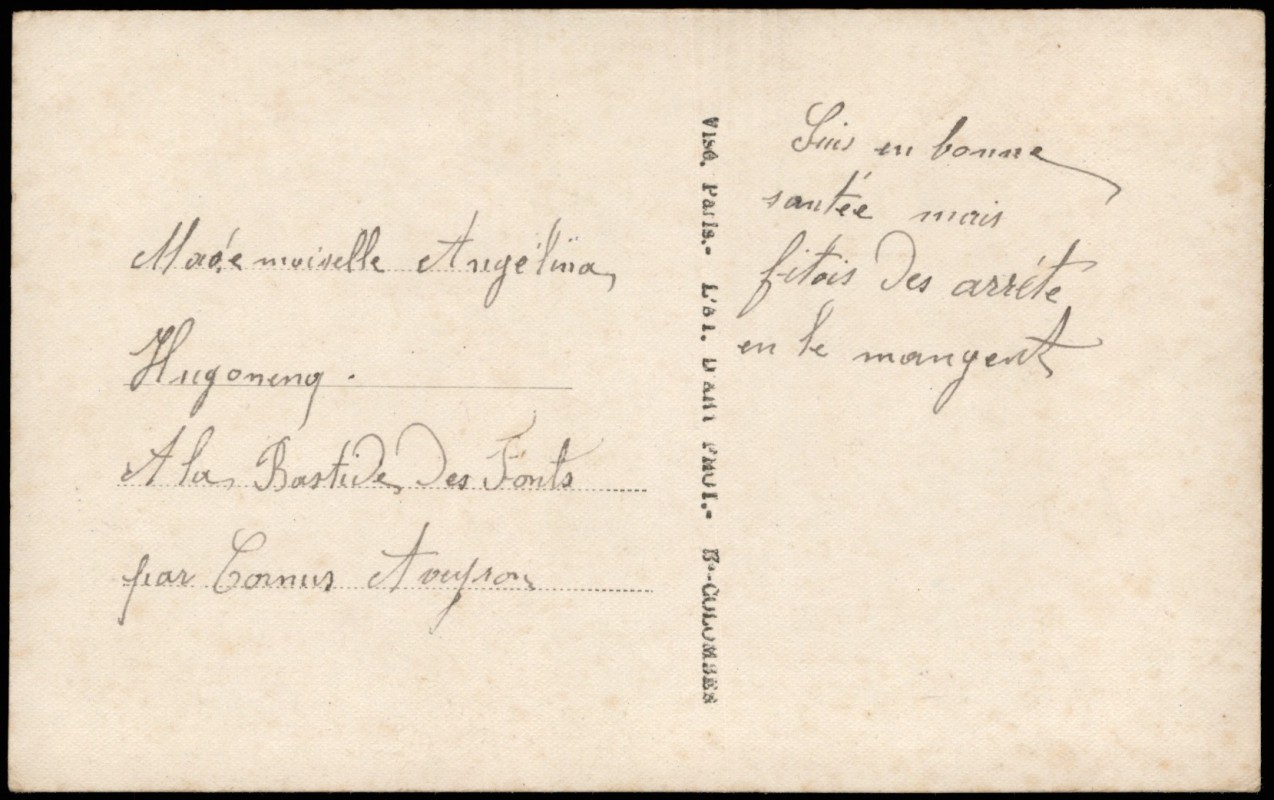 Madémoiselle Angélina
Hugonenq.
A la Bastide des Fonts
par Cornus Aveyron
Visé. Paris.- L'al. D'art PHOT.- Bs-COLOMBES
Suis en bonne
santée mais
fitois des arréte
en le mangent